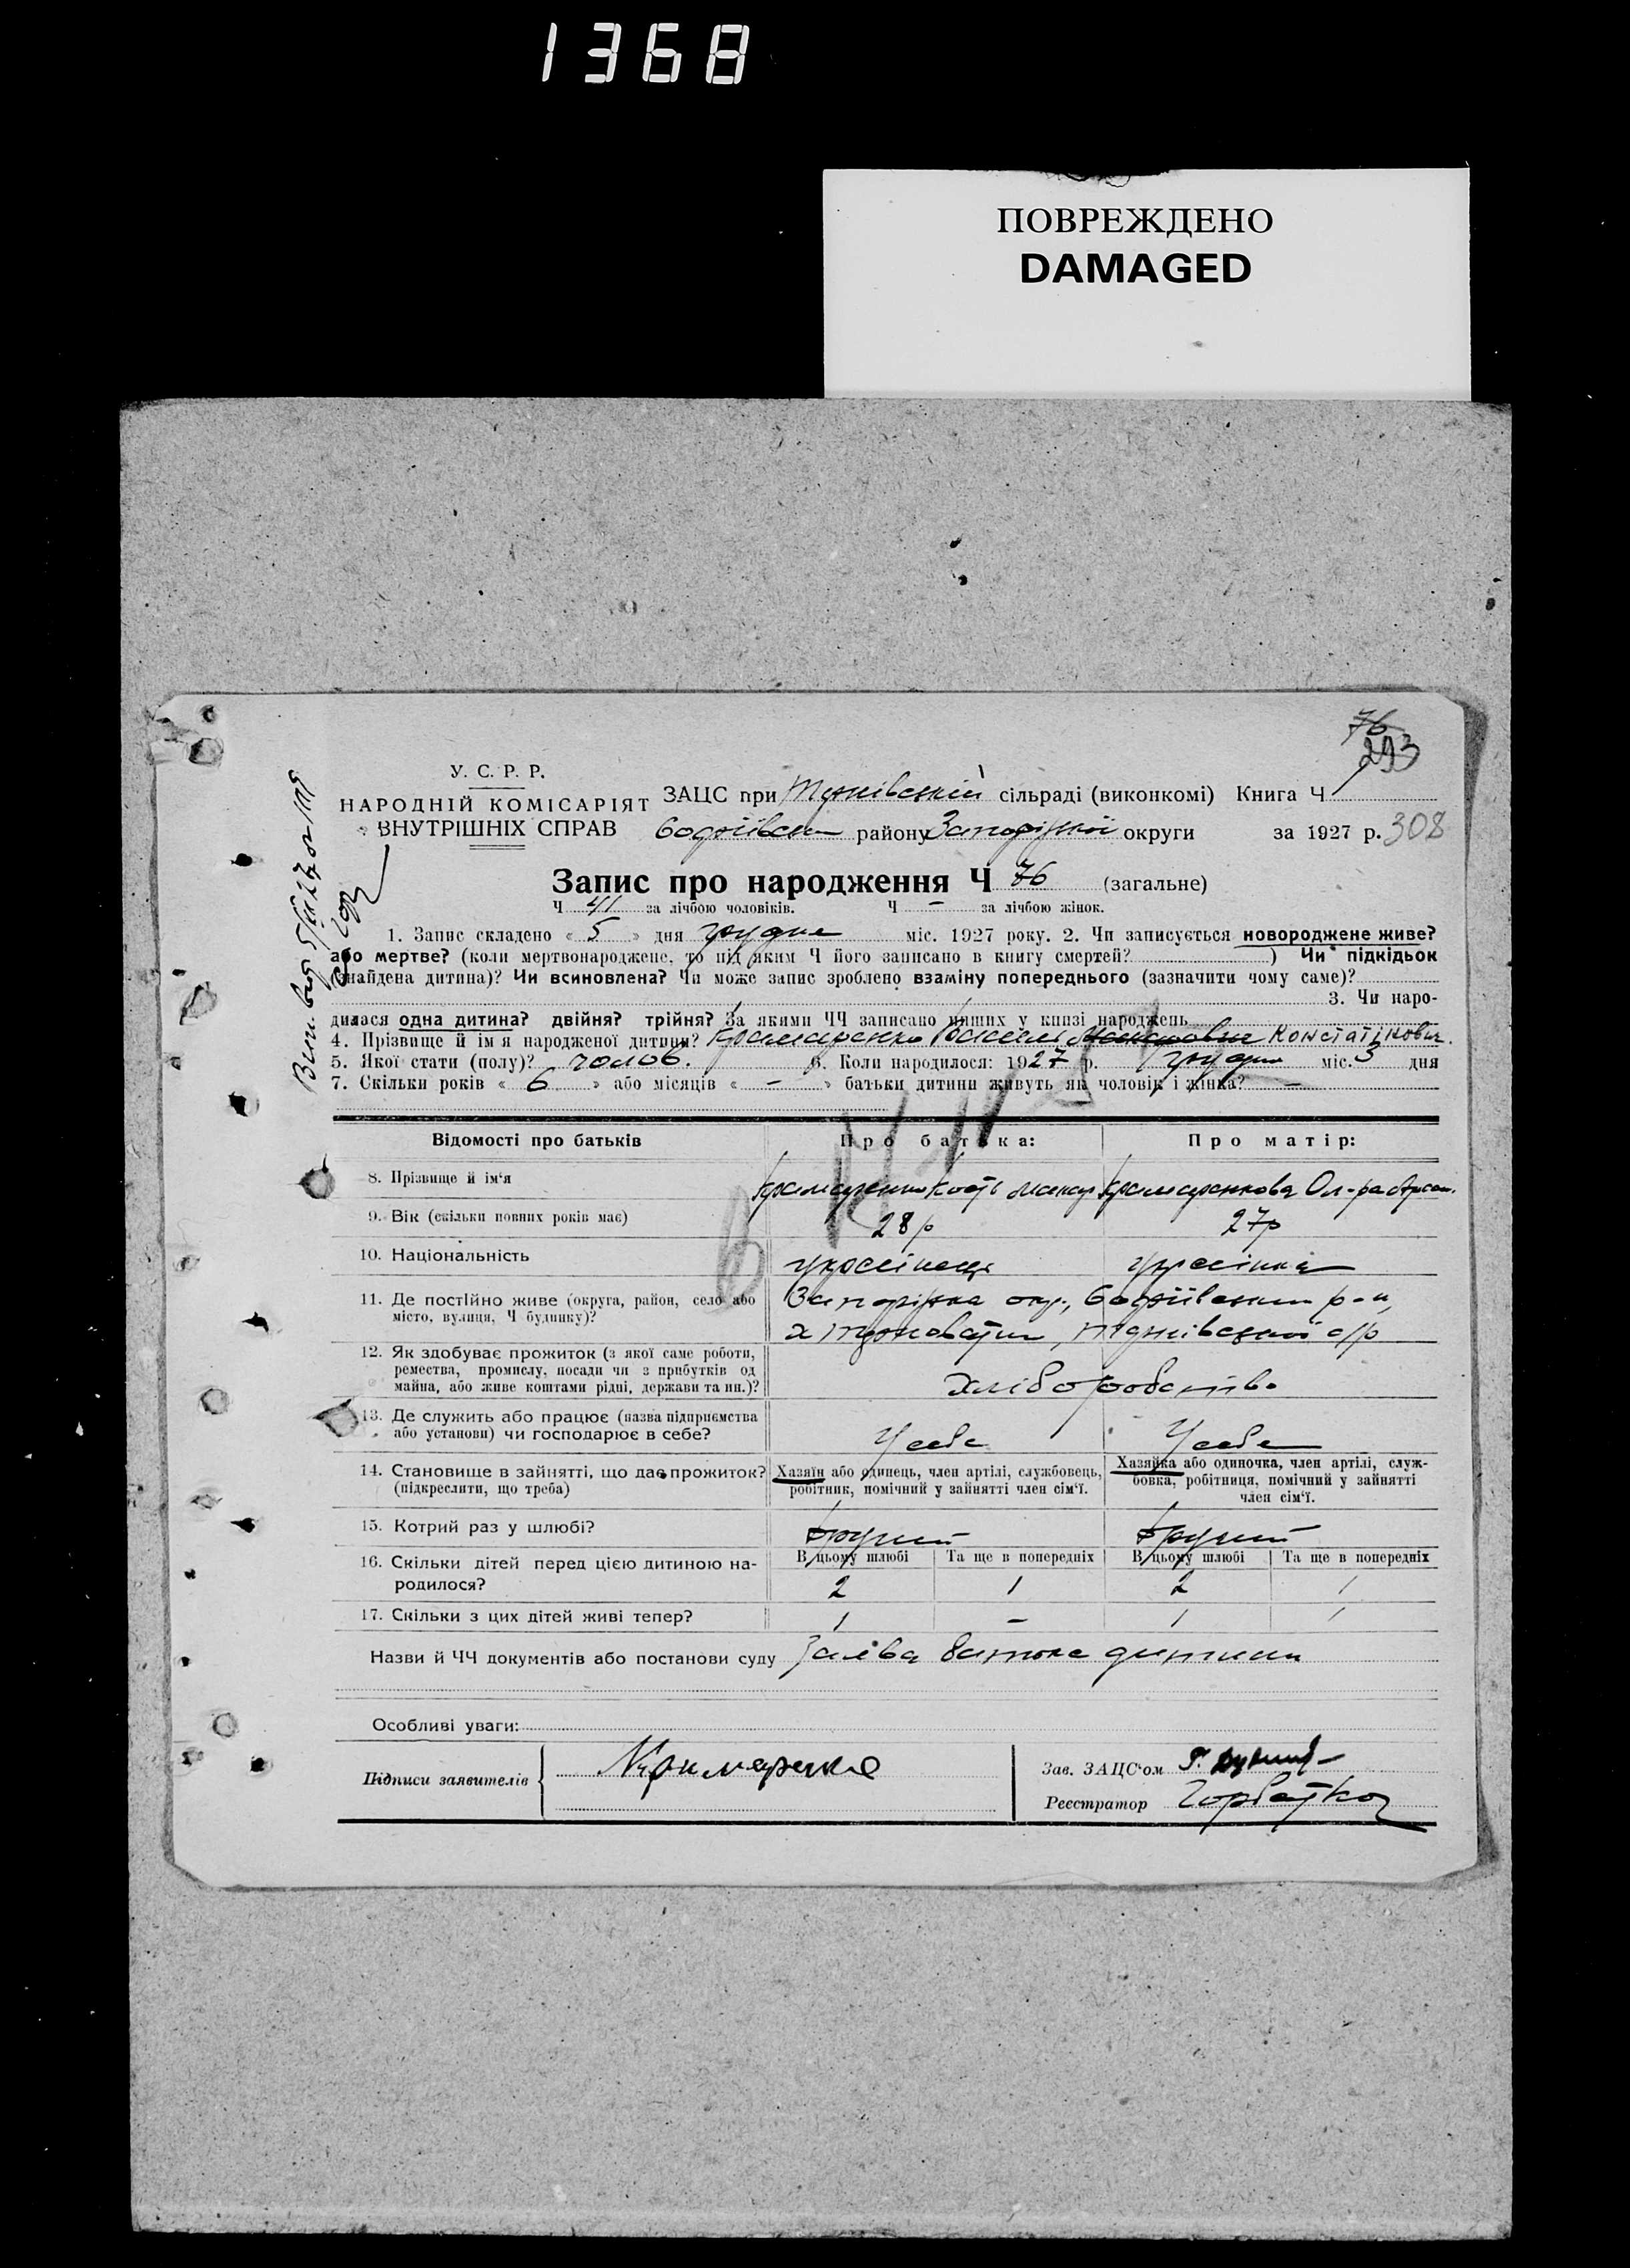 1368
ПОВРЕЖДЕНО
DAMAGED
76
293
У. С. Р. Р.
НАРОДНІЙ КОМІСАРІЯТ
ВНУТРІШНІХ СПРАВ
ЗАЦС при сільраді (виконкомі) Книга Ч
району Запоріжкої округи за 1927 р. 308
Запис про народження Ч 76 (загальне)
Ч 41 за лічбою чоловіків. Ч – за лічбою жінок.
1. Запис складено « 5 » дня грудня міс. 1927 року. 2. Чи записується новороджене живе?
або мертве? (коли мертвонароджене, то під яким Ч його записано в книгу смертей? ) Чи підкідьок
(знайдена дитина)? Чи всиновлена? Чи може запис зроблено взаміну попереднього (зазначити чому саме)?
3. Чи наро-
дилася одна дитина? двійня? трійня? За якими ЧЧ записано инших у книзі народжень
4. Прізвище й ім'я народженої дитини? Крамаренко Василь Констатінович.
5. Якої стати (полу)? чолов. 6. Коли народилося: 1927 р. грудня міс. 3 дня
7. Скільки років « 6 » або місяців « – » батьки дитини живуть як чоловік і жінка? –
Відомості про батьків Про батька: Про матір:
8. Прізвище й ім'я Крамаренко Кость Макар Крамаренкова
9. Вік (скільки повних років має) 28 р 27 р
10. Національність українець українка
11. Де постійно живе (округа, район, село або
місто, вулиця, Ч будинку)?
Запоріжка окр., р-н,
с/р
12. Як здобуває прожиток (з якої саме роботи,
ремества, промислу, посади чи з прибутків од
майна, або живе коштами рідні, держави та ин.)?
Хліборобство
13. Де служить або працює (назва підприємства
або установи) чи господарює в себе?
У себе У себе
14. Становище в зайнятті, що дає прожиток?
(підкреслити, що треба)
Хазяїн або одинець, член артілі, службовець,
робітник, помічний у зайнятті член сім'ї.
Хазяйка або одиночка, член артілі, служ-
бовка, робітниця, помічний у зайнятті
член сім'ї.
15. Котрий раз у шлюбі? другий другий
16. Скільки дітей перед цією дитиною на-
родилося?
В цьому шлюбі Та ще в попередніх В цьому шлюбі Та ще в попередніх
2 1 2 1
17. Скільки з цих дітей живі тепер? 1 – 1 1
Назви й ЧЧ документів або постанови суду Заява батька дитини
Особливі уваги:
Підписи заявителів Крамаренко
Зав. ЗАЦС'ом
Реєстратор Горбатко